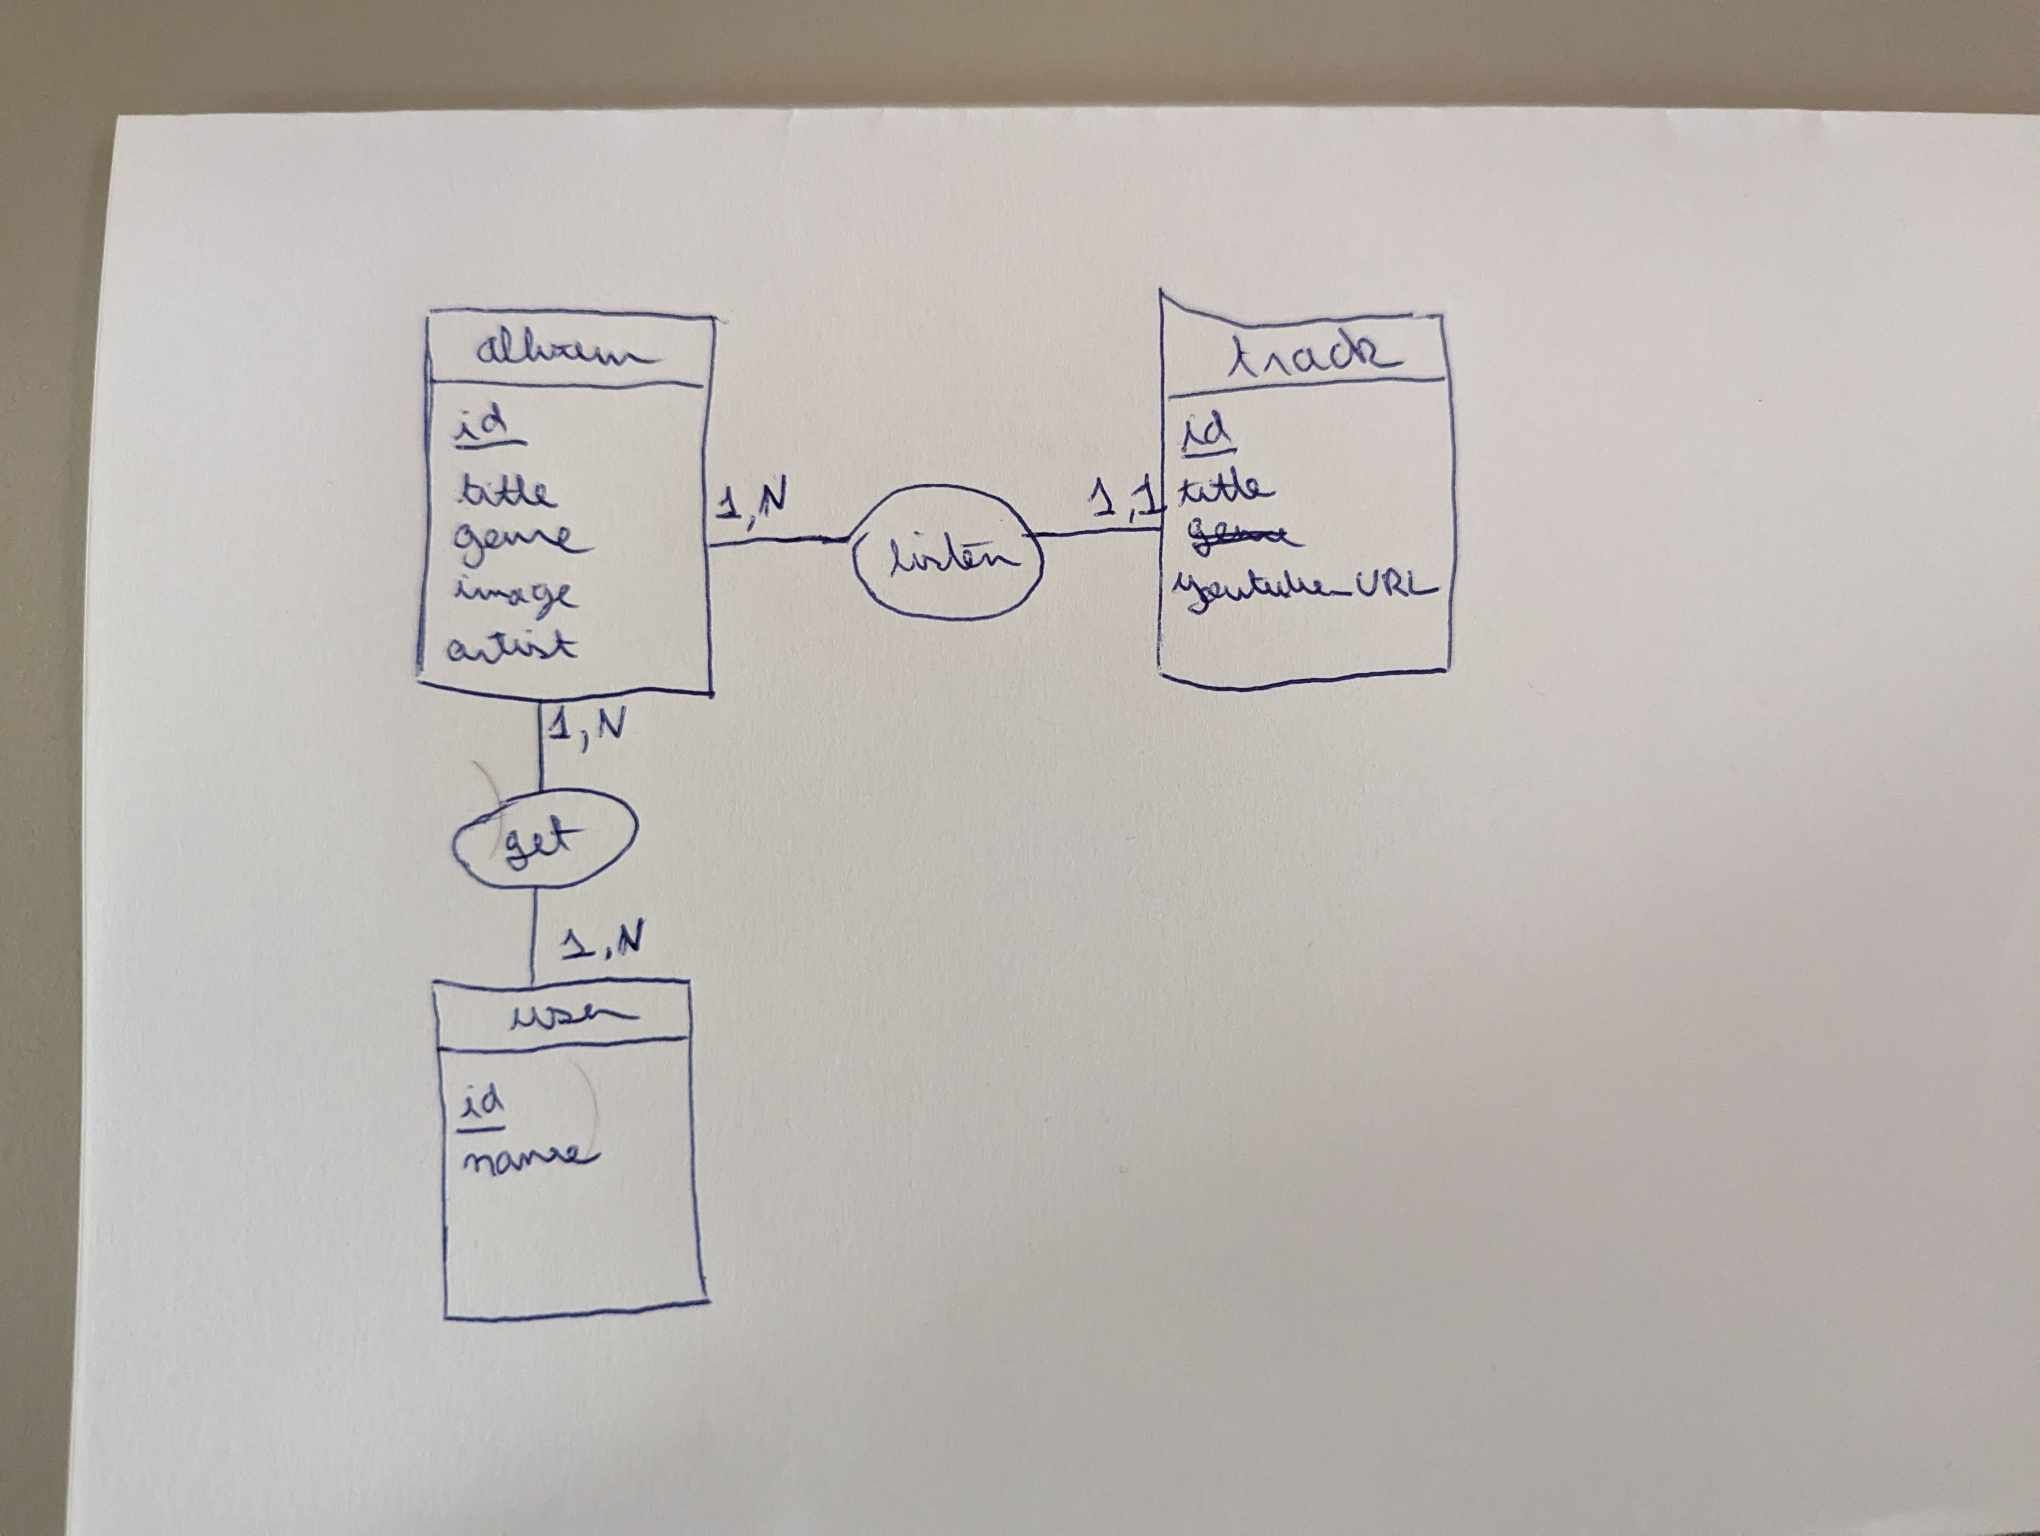 album
id
title
genre
image
artist
1,N
listen
1,1
track
id
title
genre
youtube_URL
1,N
get
1,N
user
id
name